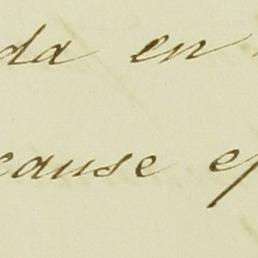 da en
cause ef